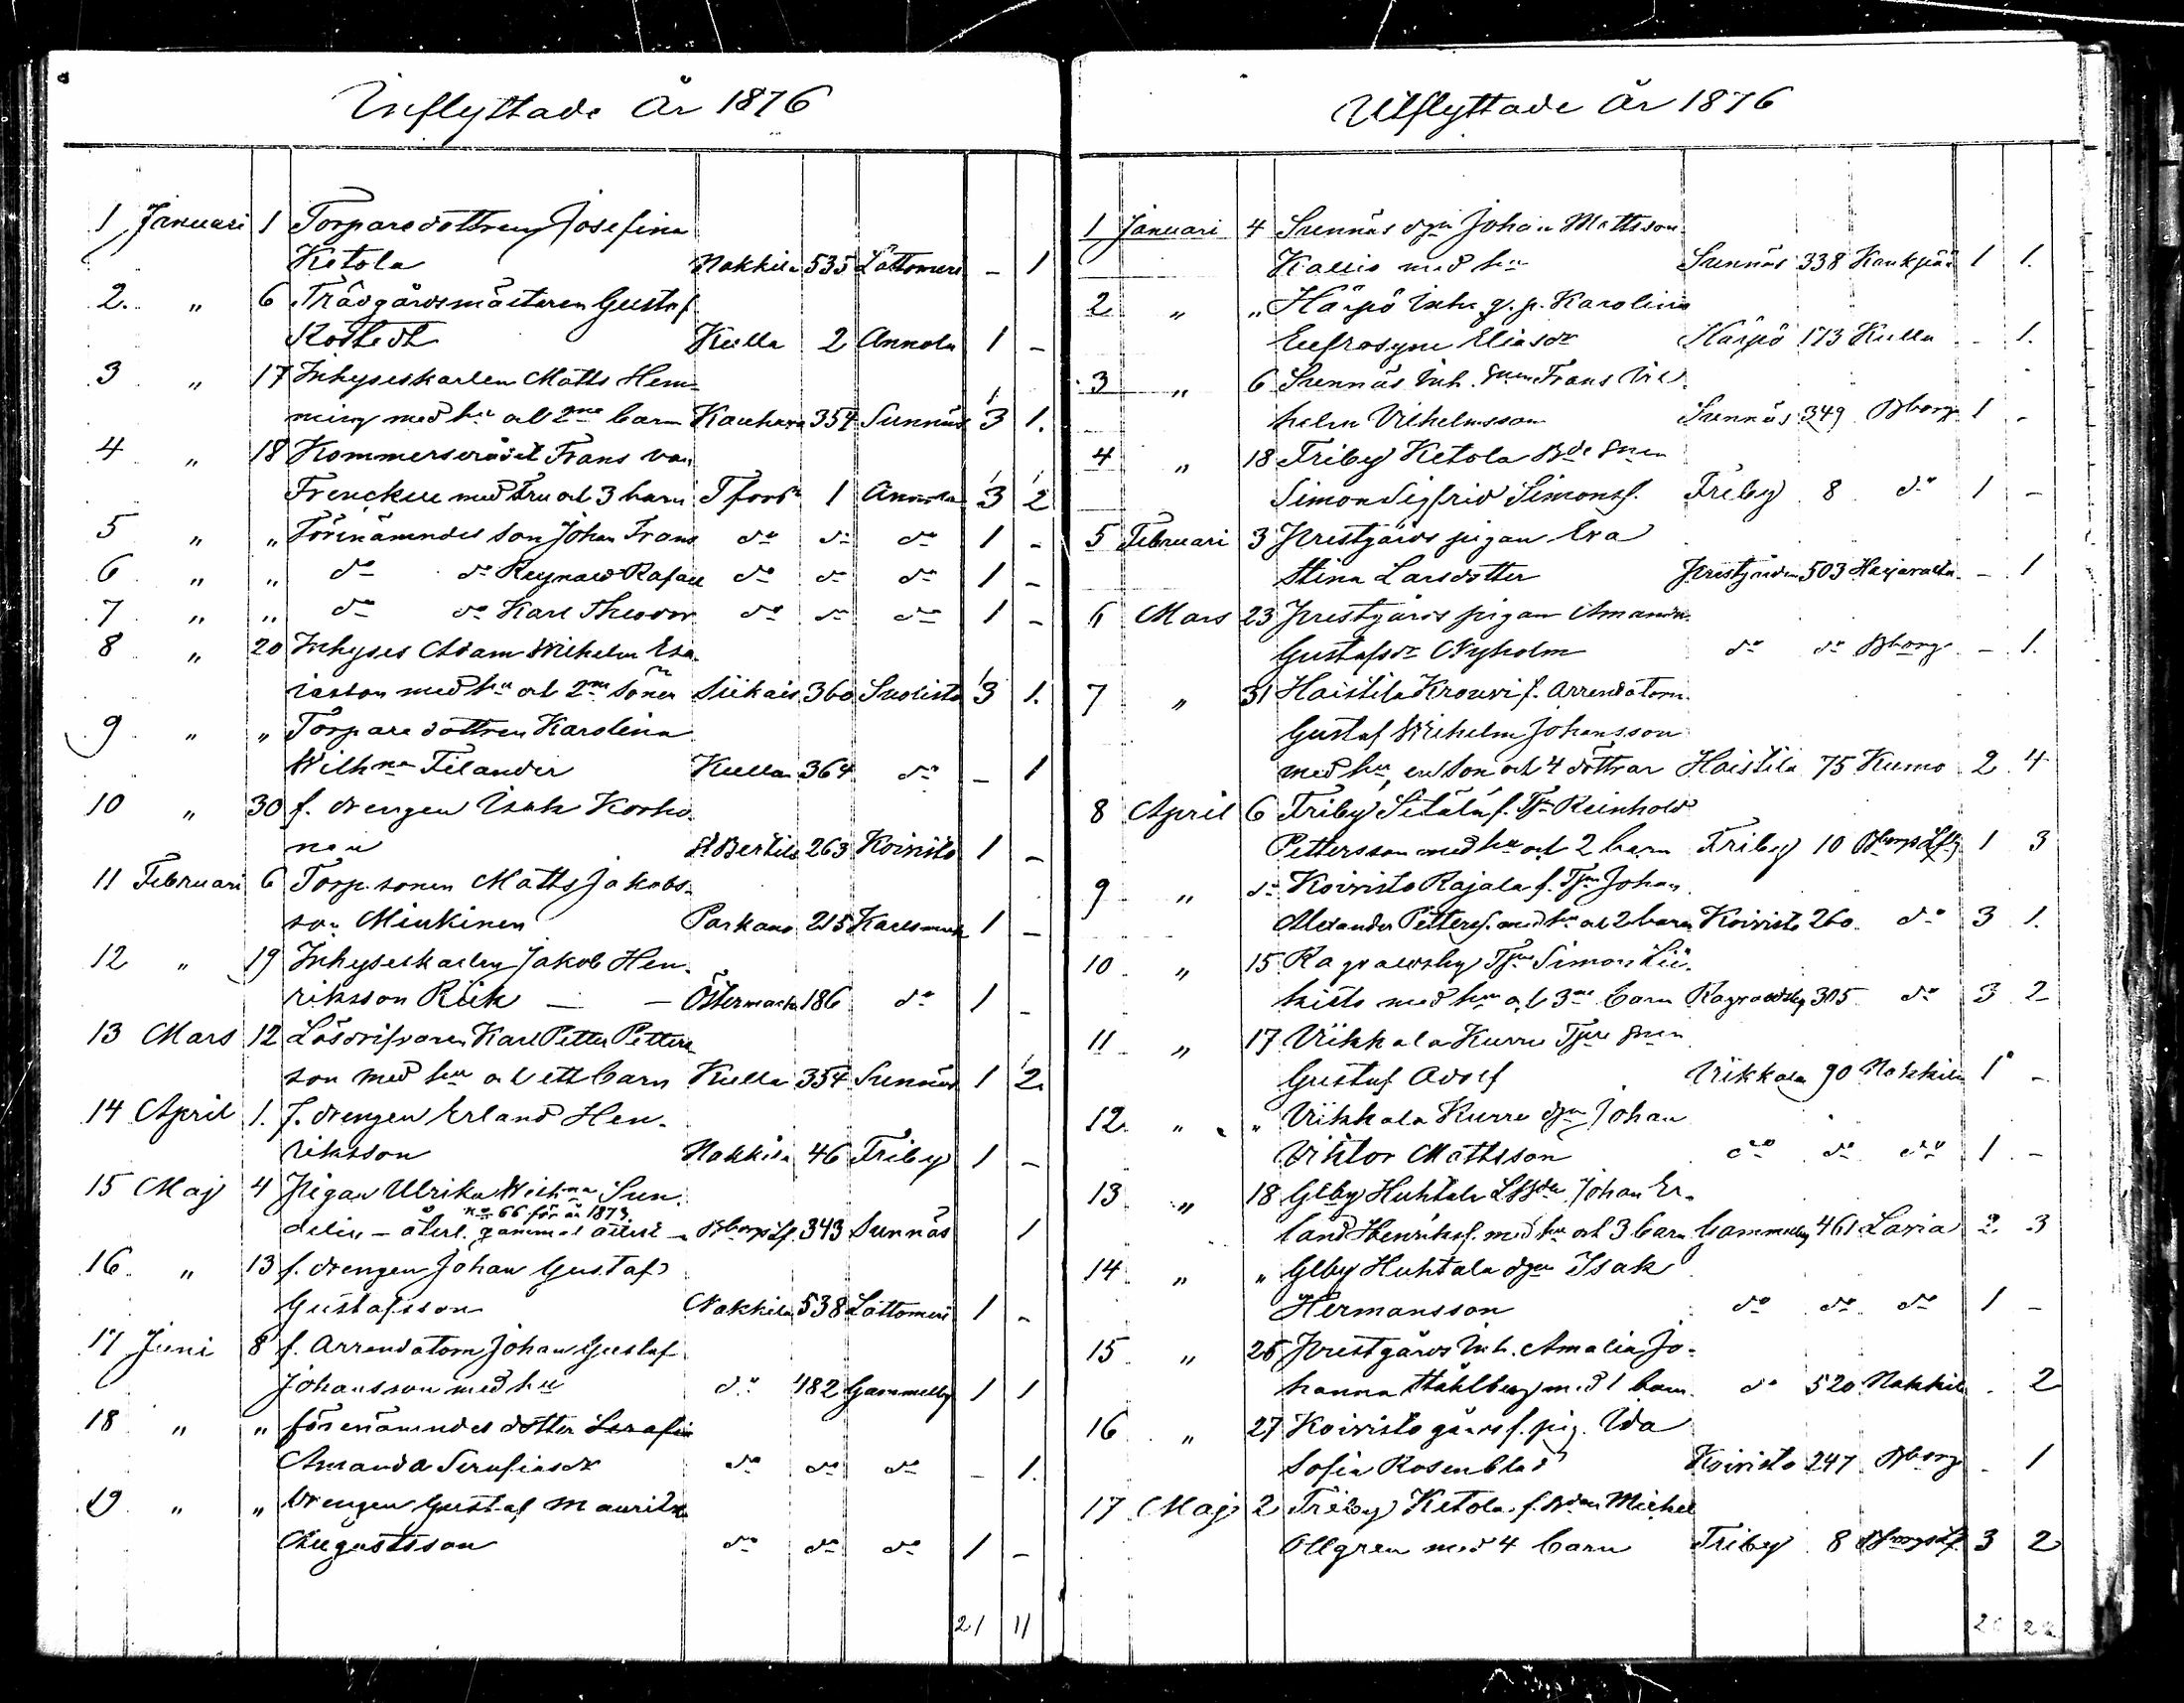 Inflyttade År 1876
1 Januari 1 Torparedottren Josefina
Ketola Nakkila 535 Lattomeri - 1
2. " 6 Trädgårdsmästaren Gustaf
Kulla 2 Annola 1 -
3 " 17 Inhyseskarlen Matts Hem-
ming med hu och 2ne barn 354 Sunnäs 3 1.
4 " 18 Kommerserådet Frans von
Frenckell med Fru och 3 barn Tfors 1 Annola 3 2
5 " " Förenämndes son Johan Frans do do do 1 -
6 " " do do Reynold Rafael do do do 1 -
7 " " do do Karl Theodor do do do 1 -
8 " 20 Inhyses Adam Wilhelm Esa-
iasson med hu och 2ne söner Siikais 360 Suolisto 3 1.
9 " " Torparedottren Karolina
Wilhna Filander Kulla 364 do - 1
10 " 30 f. drengen Isak Korho-
nen St Bertils 263 Koivisto 1 -
11 Februari 6 Torp. sonen Matts Jakobs-
son Minkinen Parkano 215 Karlsmark 1 -
12 " 19 Inhyseskarlen Jakob Hen-
riksson Riik - - Östermark 186 do 1 -
13 Mars 12 Lösdrifvaren Karl Petter Petters-
son med hu och ett barn Kulla 354 Sunnäs 1 2
14 April 1. f. drengen Erland Hen-
riksson Nakkila 46 Friby 1 -
15 Maj 4 Pigan Ulrika Wilhna Sun-
no 66 för år 1873
delin - återl. gammal attest - Bborgs Lf. 343 Sunnäs 1
16 " 13 f. drengen Johan Gustaf
Gustafsson Nakkila 538 Lattomeri 1 -
17 Juni 8 f. Arrendatorn Johan Gustaf
Johansson med hu do 482 Gammelby 1 1
18 " " förenämndes dotter Serafin
Amanda Serafinadr do do do - 1.
19 " " drengen Gustaf Mauritz
Augustsson do do do 1 -
21 11
Utflyttade År 1876
1 Januari 4 Sunnäs dgn Johan Mattsson
Kallio med hu Sunnäs 338 Kankpää 1 1.
2 " " Härpö Inh. g. p. Karolina
Eufrosyne Eliasdr Härpö 173 Kulla - 1.
3 " 6 Sunnäs Inh. snen Frans Vil-
helm Vilhelmsson Sunnäs 349 Bborg 1 -
4 " 18 Friby Ketola Bde snen
Simon Sigfrid Simonss. Friby 8 do 1 -
5 Februari 3 Prestgårds pigan Eva
Stina Larsdotter Prestgården 503 Harjavalta - 1
6 Mars 23 Prestgårds pigan Amanda
Gustafsdr Nyholm do do Bborg - 1.
7 " 31 Haistila Krouvi f. Arrendatorn
Gustaf Wilhelm Johansson
med hu, en son och 4 döttrar Haistila 75 Kumo 2 4
8 April 6 Friby Sitälä f. Tpr Reinhold
Pettersson med hu och 2 barn Friby 10 Bborgs Lfg 1 3
9 " do Koivisto Rajala f. Tpn Johan
Alexander Petterss. med hu och 2 barn Koivisto 260 do 3 1.
10 " 15 Ragvaldsby Tpn Simon Lii-
kisto med hu och 3ne barn Ragvaldsby 305 do 3 2
11 " 17 Viikkala Kurre Tpre snen
Gustaf Adolf Viikkala 90 Nakkila 1 -
12 " " Viikkala Kurre dgn Johan
Viktor Mattsson do do do 1 -
13 " 18 Glby Huhtala Johan Er-
land Henrikss. med hu och 3 barn Gammelby 461 Lavia 2 3
14 " " Glby Huhtala dgn Isak
Hermansson do do do 1 -
15 " 26 Prestgårds Inh. Amalia Jo-
hanna Ståhlberg med 1 barn do 520 Nakkila - 2
16 " 27 Koivisto gårds f. pig. Ida
Sofia Rosenblad Koivisto 247 Bborg - 1
17 Maj 2 Friby Ketola f. Bden Michel
Ollgren med 4 barn Friby 8 Bborgs Lf. 3 2